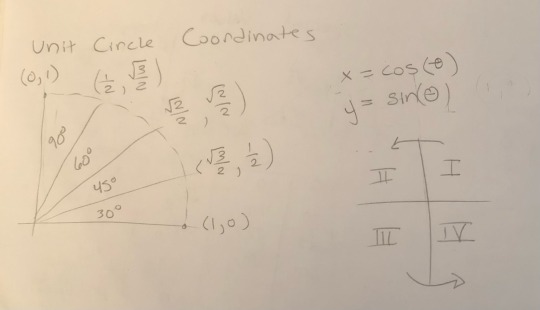 Unit Circle Coordinates
(0,1)
(1/2, √3/2)
√2/2, √2/2)
(√3/2, 1/2)
(1,0)
90°
60°
45°
30°
x = cos(θ)
y = sin(θ)
II I
III IV